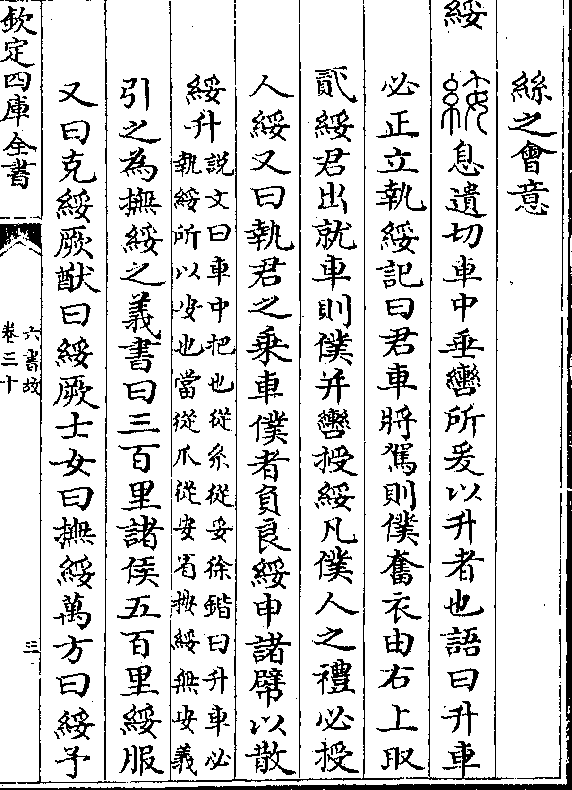 絲之會意
綏 綏息遺切車中垂轡所爰以升者也語曰升車
必正立執綏記曰君車將駕則僕奮衣由右上取
貳綏君出就車則僕幷轡授綏凡僕人之禮必授
人綏又曰執君之乘車僕者負良綏申諸幦以散
綏升說文曰車中把也從糸從妥徐鍇曰升車必
執綏所以安也當從爪從安省按綏無安義
引之為撫綏之義書曰三百里諸侯五百里綏服
又曰克綏厥猷曰綏厥士女曰撫綏萬方曰綏予
欽定四庫全書
六書故
卷三十
三